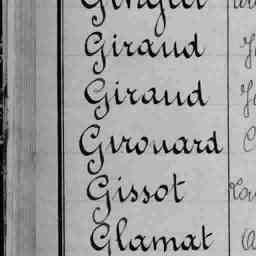 Giraud
Giraud
Girouard
Gissot
Glamat